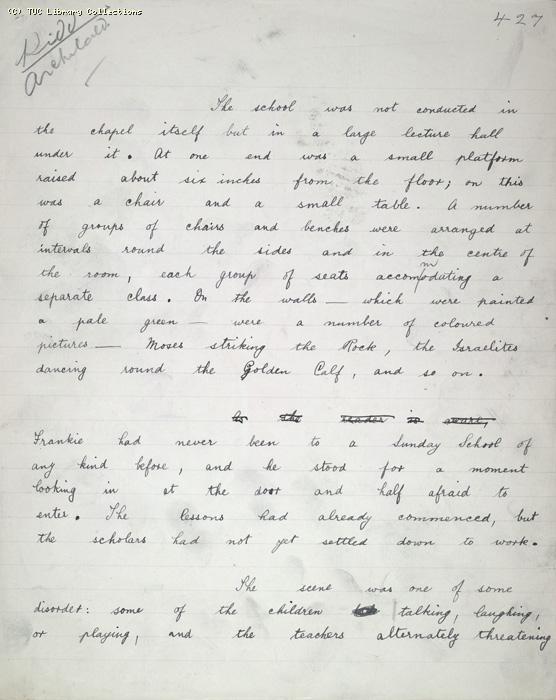 (C) TUC Library Collections
427
Archibald.
The school was not conducted in
the chapel itself but in a large lecture hall
under it. At one end was a small platform
raised about six inches from the floor; on this
was a chair and a small table. A number
of groups of chairs and benches were arranged at
intervals round the sides and in the centre of
the room, each group of seats accommodating a
separate class. On the walls — which were painted
a pale green — were a number of coloured
pictures — Moses striking the Rock, the Israelites
dancing round the Golden Calf, and so on.
As the reader is aware,
Frankie had never been to a Sunday School of
any kind before, and he stood for a moment
looking in at the door and half afraid to
enter. The lessons had already commenced, but
the scholars had not yet settled down to work.
The scene was one of some
disorder: some of the children talking, laughing,
or playing, and the teachers alternately threatening